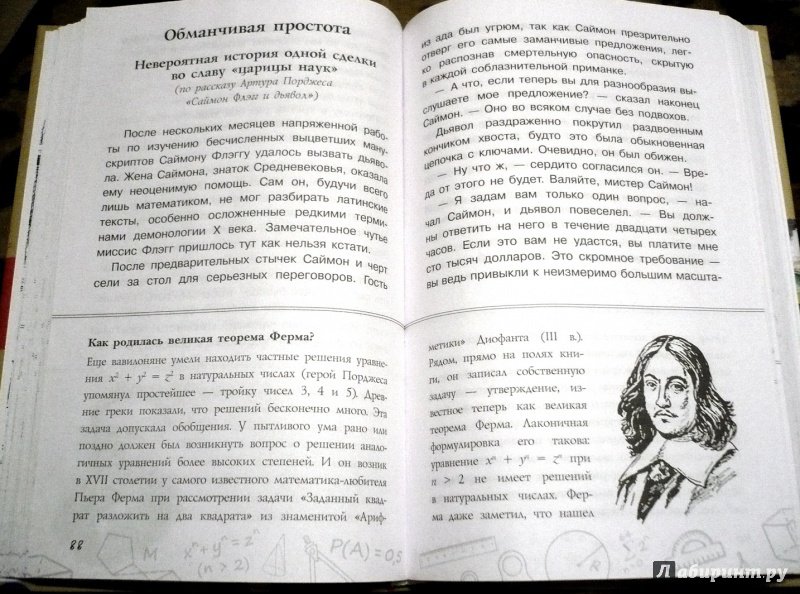 Обманчивая простота
Невероятная история одной сделки
во славу «царицы наук»
(по рассказу Артура Порджеса
«Саймон Флэгг и дьявол»)
После нескольких месяцев напряженной рабо-
ты по изучению бесчисленных выцветших ману-
скриптов Саймону Флэггу удалось вызвать дьяво-
ла. Жена Саймона, знаток Средневековья, оказала
ему неоценимую помощь. Сам он, будучи всего
лишь математиком, не мог разбирать латинские
тексты, особенно осложненные редкими терми-
нами демонологии X века. Замечательное чутье
миссис Флэгг пришлось тут как нельзя кстати.
После предварительных стычек Саймон и черт
сели за стол для серьезных переговоров. Гость
Как родилась великая теорема Ферма?
Еще вавилоняне умели находить частные решения уравне-
ния x² + y² = z² в натуральных числах (герой Порджеса
упомянул простейшее — тройку чисел 3, 4 и 5). Древ-
ние греки показали, что решений бесконечно много. Эта
задача допускала обобщения. У пытливого ума рано или
поздно должен был возникнуть вопрос о решении анало-
гичных уравнений более высоких степеней. И он возник
в XVII столетии у самого известного математика-любителя
Пьера Ферма при рассмотрении задачи «Заданный квад-
рат разложить на два квадрата» из знаменитой «Ариф-
88
M
xⁿ + yⁿ = zⁿ
(n > 2)
P(A) = 0,5
из ада был угрюм, так как Саймон презрительно
отверг его самые заманчивые предложения, лег-
ко распознав смертельную опасность, скрытую
в каждой соблазнительной приманке.
— А что, если теперь вы для разнообразия вы-
слушаете мое предложение? — сказал наконец
Саймон. — Оно во всяком случае без подвохов.
Дьявол раздраженно покрутил раздвоенным
кончиком хвоста, будто это была обыкновенная
цепочка с ключами. Очевидно, он был обижен.
— Ну что ж, — сердито согласился он. — Вре-
да от этого не будет. Валяйте, мистер Саймон!
— Я задам вам только один вопрос, — на-
чал Саймон, и дьявол повеселел. — Вы долж-
ны ответить на него в течение двадцати четырех
часов. Если это вам не удастся, вы платите мне
сто тысяч долларов. Это скромное требование —
вы ведь привыкли к неизмеримо большим масшта-
метики» Диофанта (III в.).
Рядом, прямо на полях кни-
ги, он записал собственную
задачу — утверждение, из-
вестное теперь как великая
теорема Ферма. Лаконичная
формулировка его такова:
уравнение xⁿ + yⁿ = zⁿ при
n > 2 не имеет решений
в натуральных числах. Фер-
ма даже заметил, что нашел
Лабиринт.ру